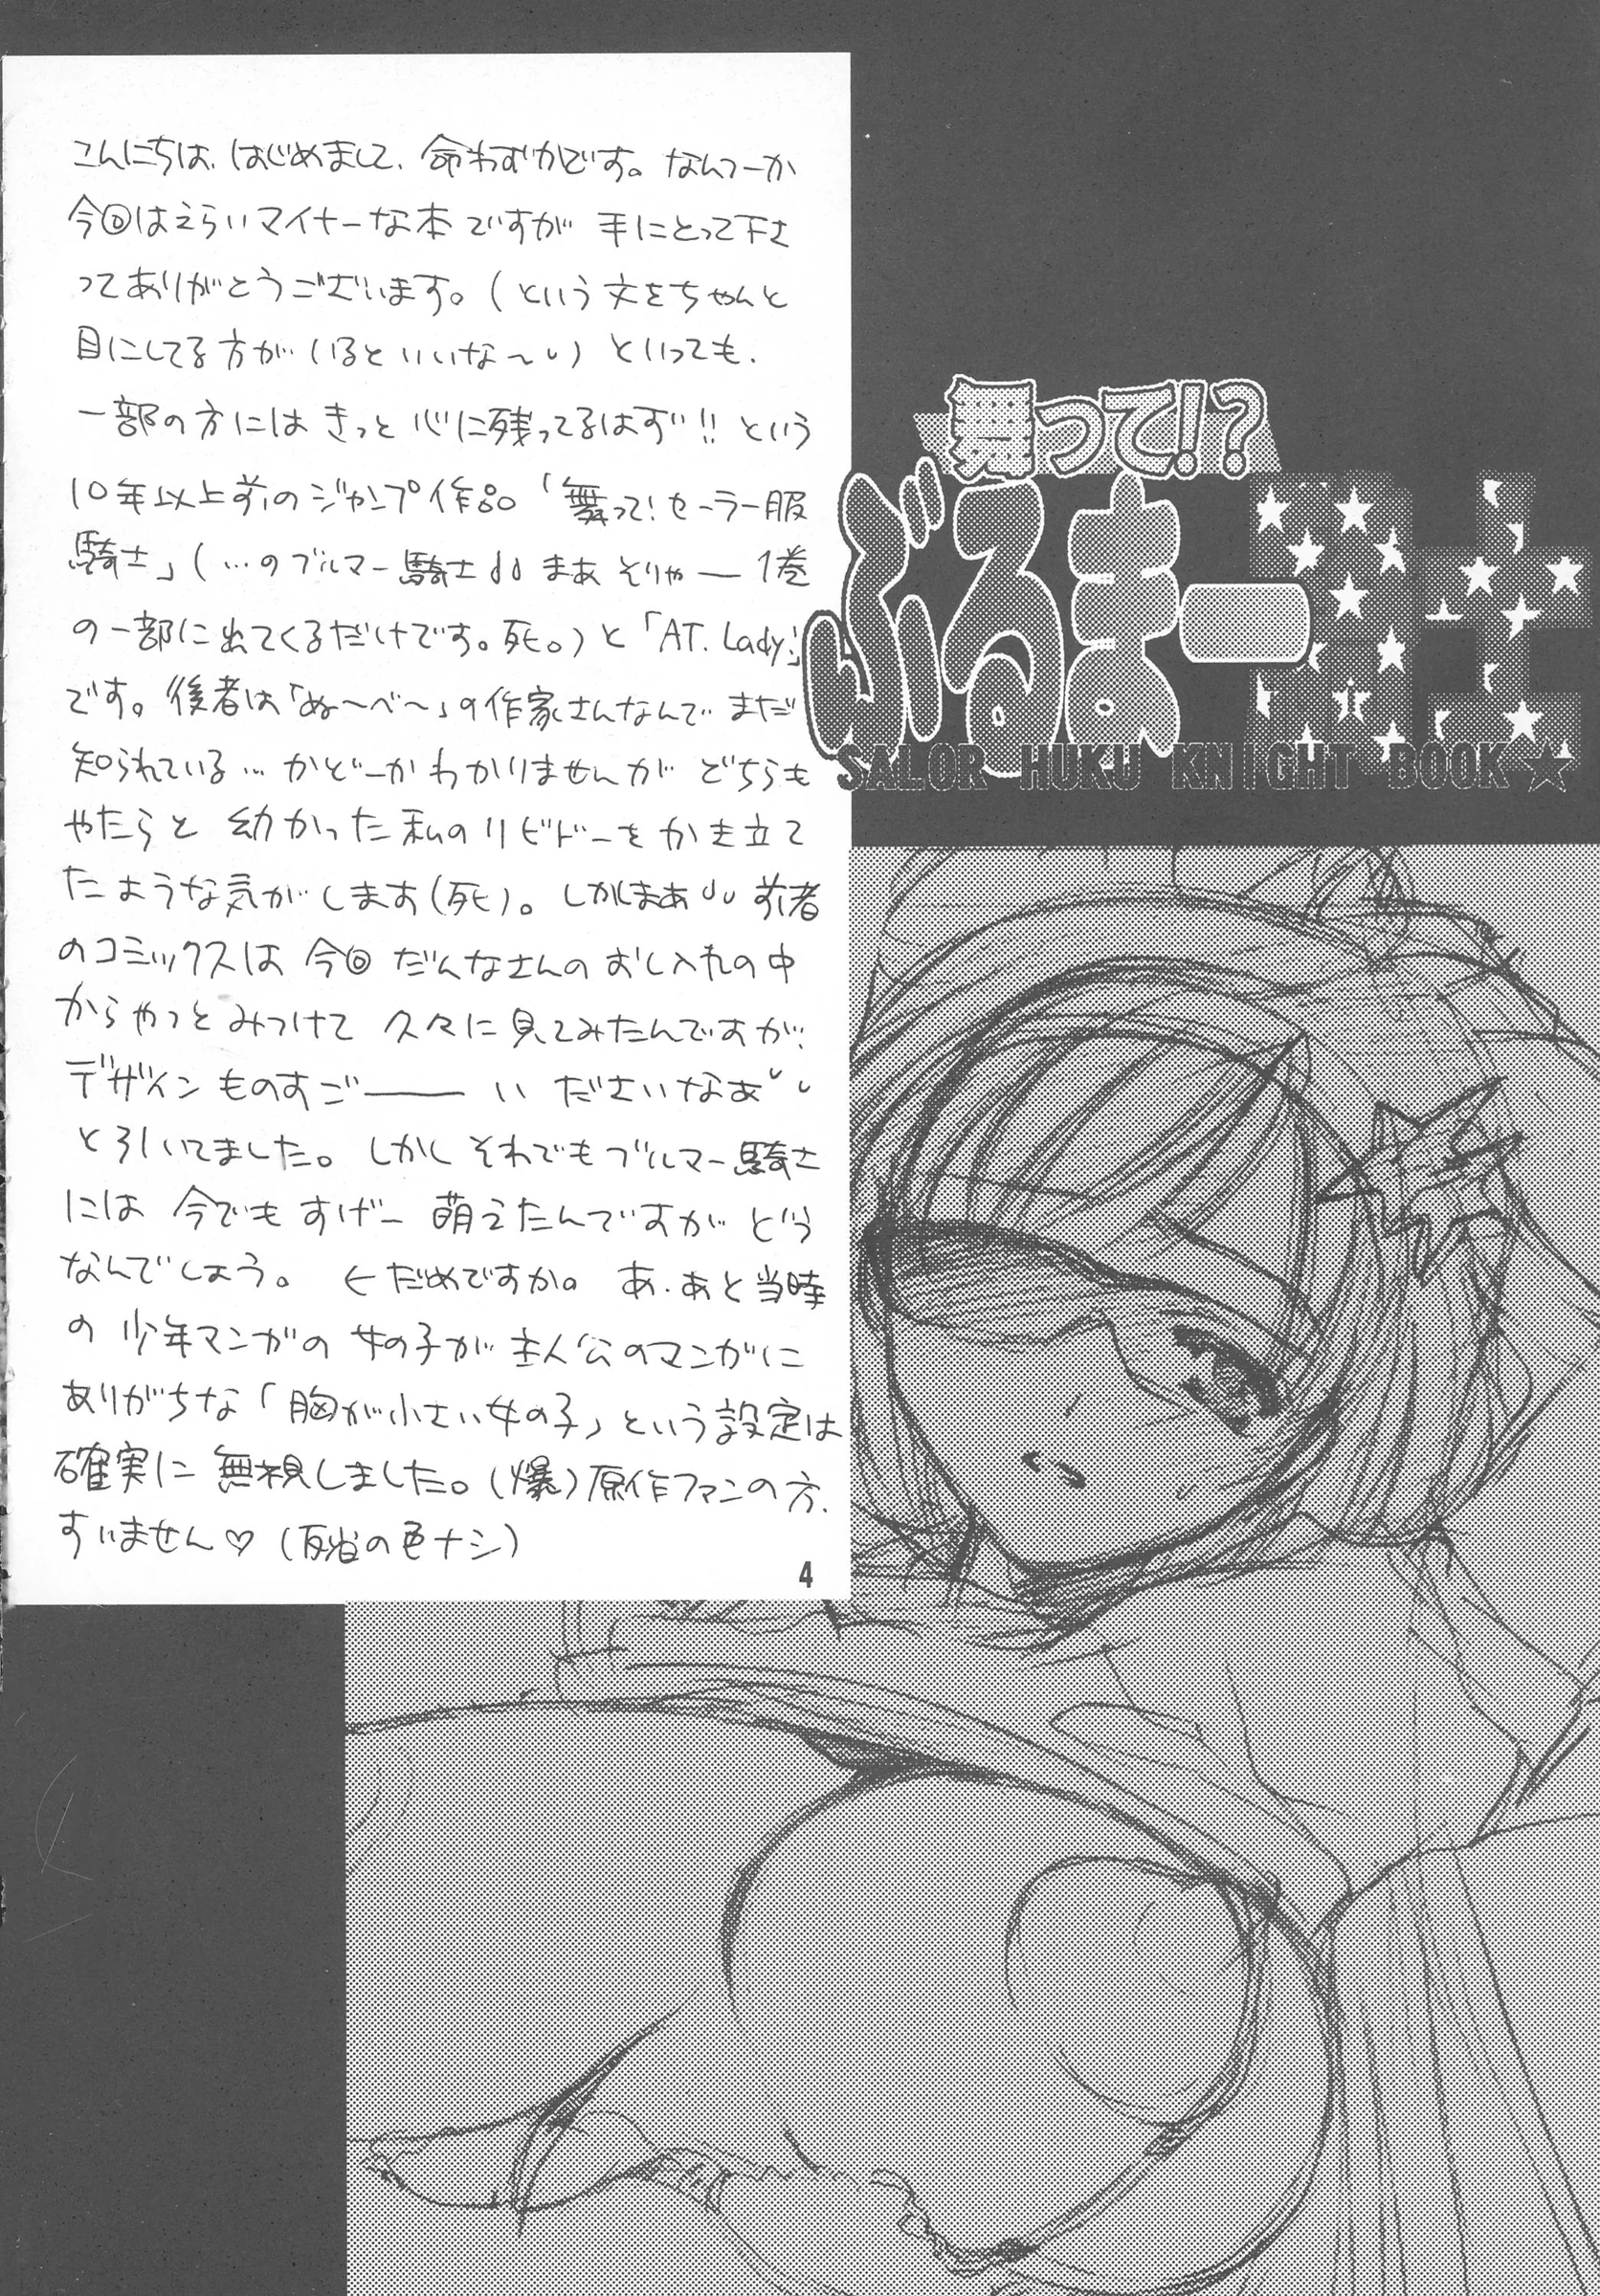 こんにちは、はじめまして、命わずかです。なんつーか
今回はえらいマイナーな本ですが 手にとって下さ
ってありがとうございます。(という文をちゃんと
目にしてる方がいるといいな〜) といっても、
一部の方にはきっと心に残ってるはず!! という
10年以上前のジャンプ作品「舞って!セーラー服
騎士」(…のブルマー騎士 まあそりゃー1巻
の一部に出てくるだけです。死。)と「AT. Lady!」
です。後者は「ぬ〜べ〜」の作家さんなんでまだ
知られている…かどーかわかりませんがどちらも
やたらと 幼かった私のリビドーをかき立て
たような気がします(死)。しかしまあ 前者
のコミックスは今回だんなさんのおし入れの中
からやっとみつけて久々に見てみたんですが、
デザインものすごーーーいださいなあ
と引いてました。しかしそれでもブルマー騎士
には今でもすげー萌えたんですがどう
なんでしょう。 ←だめですか。 あ、あと当時
の少年マンガの女の子が主人公のマンガに
ありがちな「胸が小さい女の子」という設定は
確実に無視しました。(爆)原作ファンの方、
すいません♡(反省の色ナシ)
4
舞って!?
ぶるまー騎士
SALOR HUKU KNIGHT BOOK☆